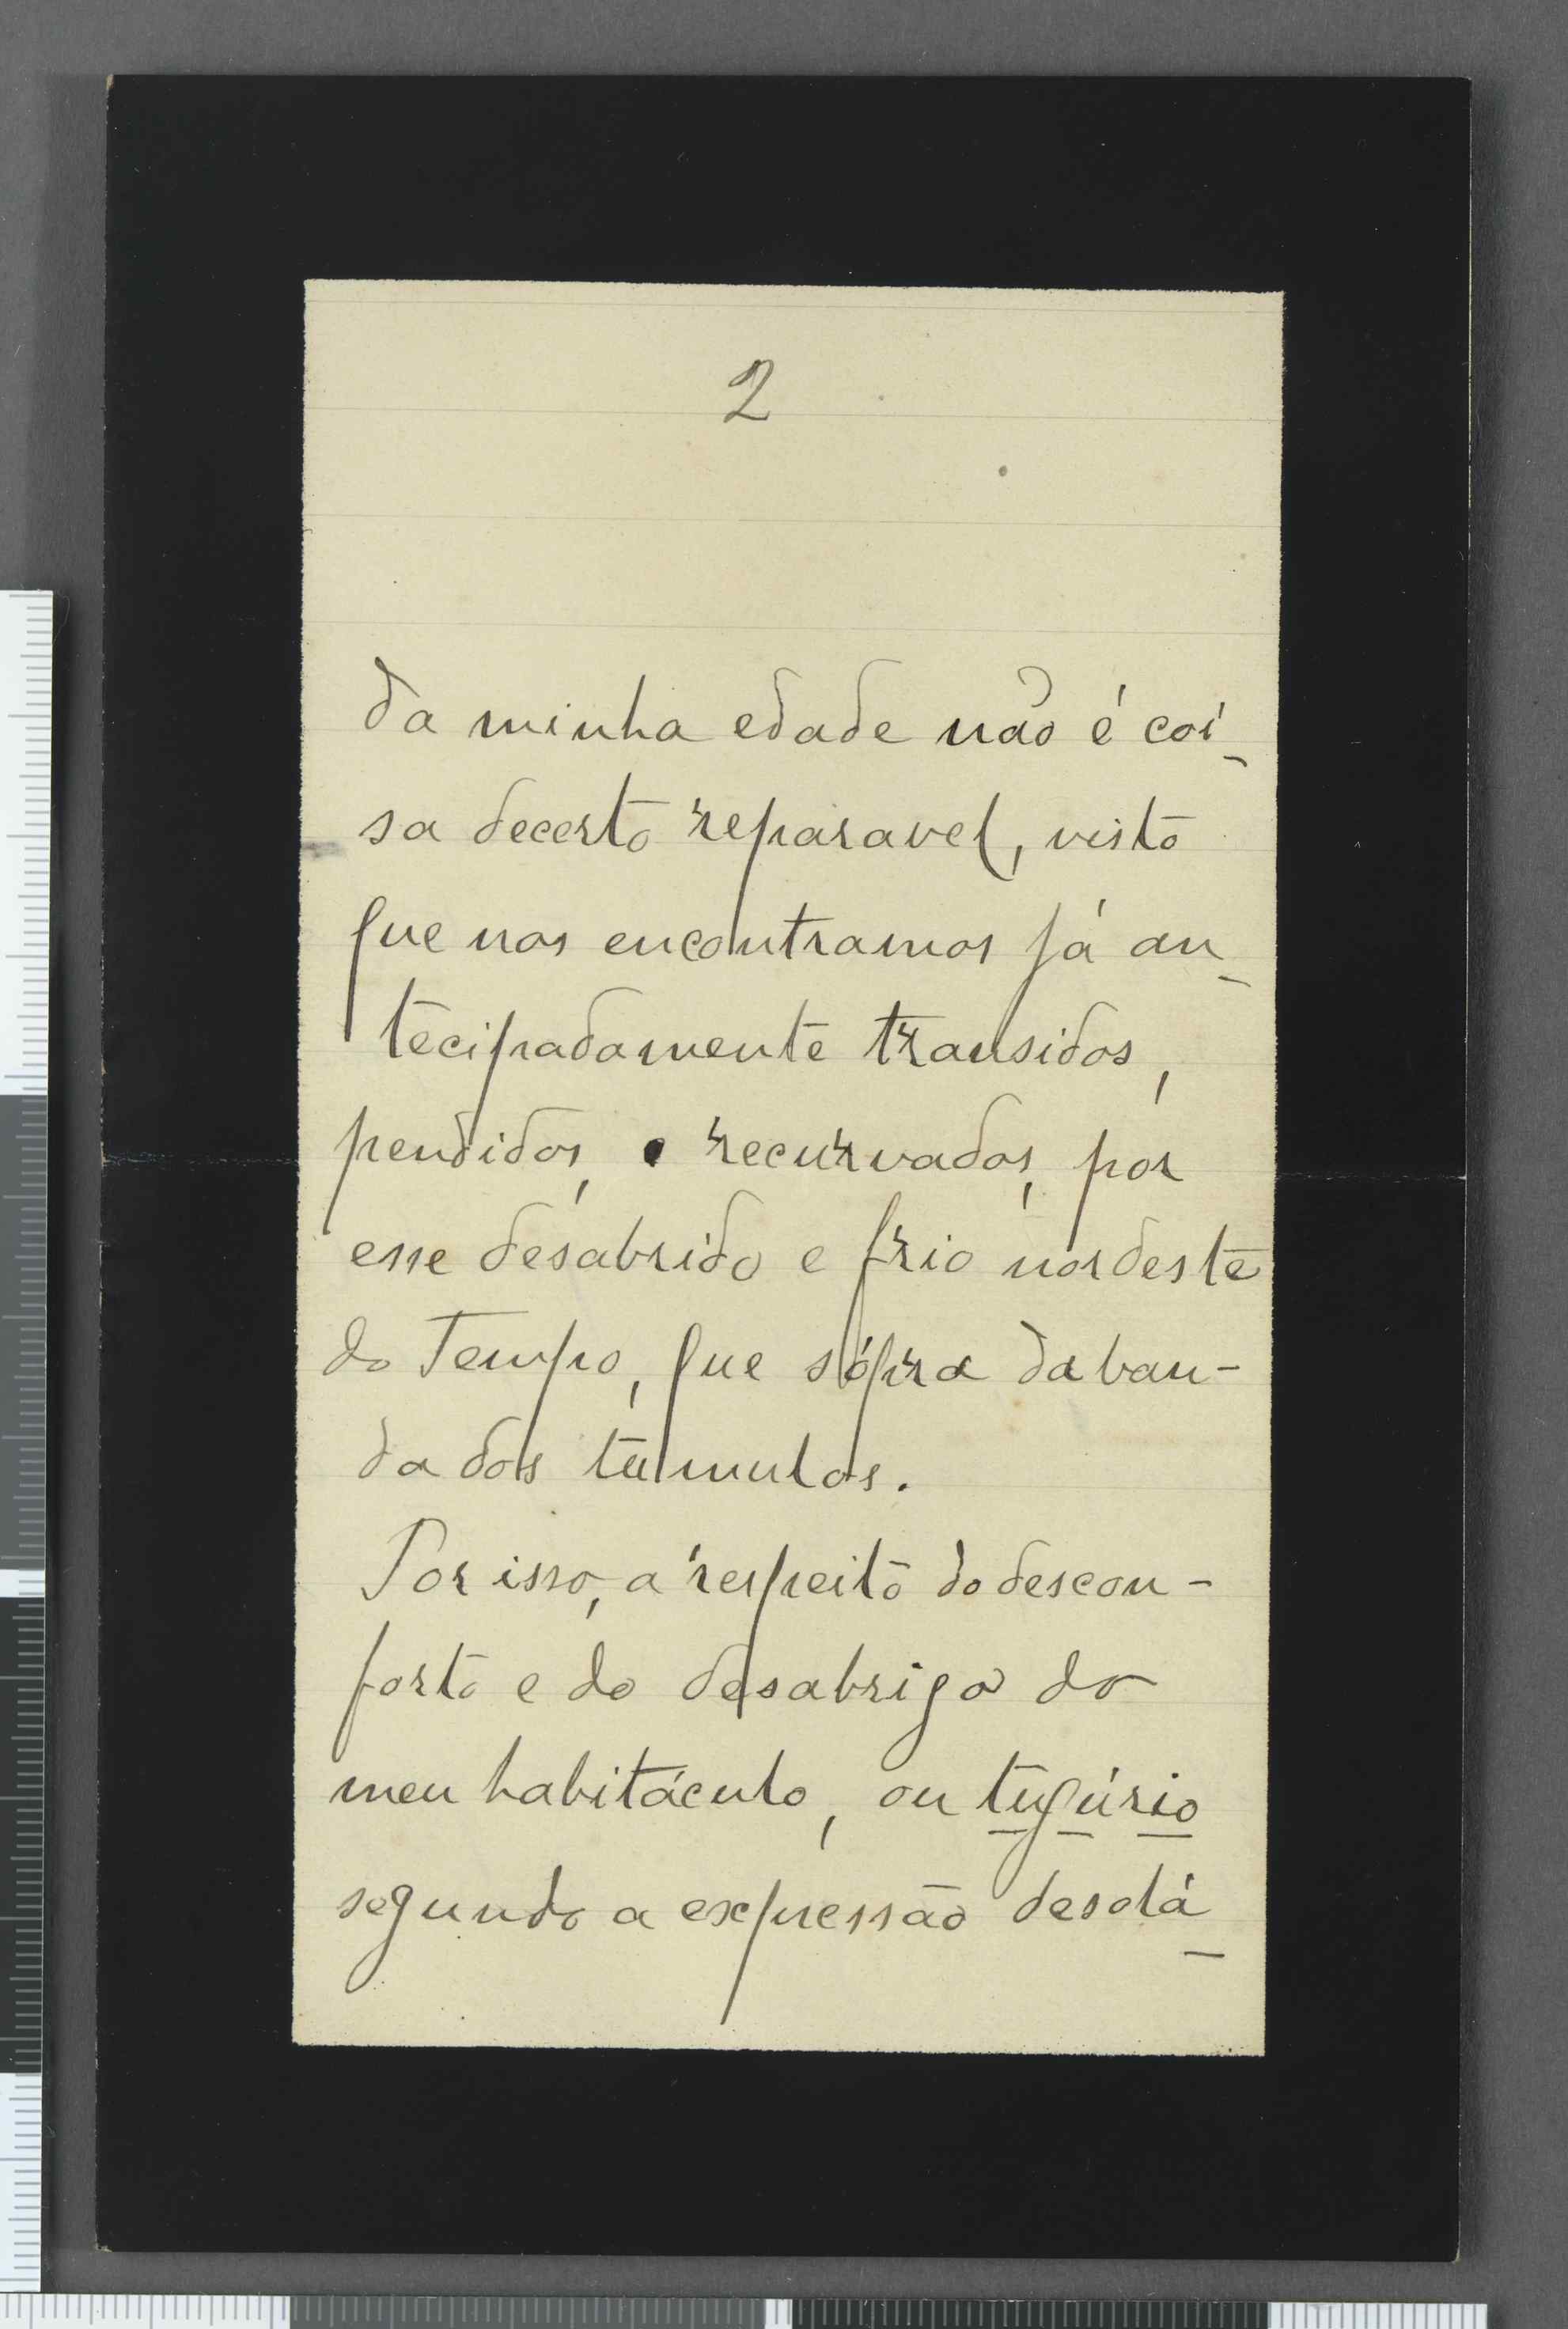 2
da minha edade não é coi-
sa decerto reparavel, visto
que nos encontramos já an-
tecipadamente transidos,
pendidos, e recurvados, por
esse desabrido e frio nordeste
do Tempo, que sópra da ban-
da dos tumulos.
Por isso, a respeito do descon-
forto e do desabrigo do
meu habitáculo, ou tugúrio
segundo a expressão desolá-